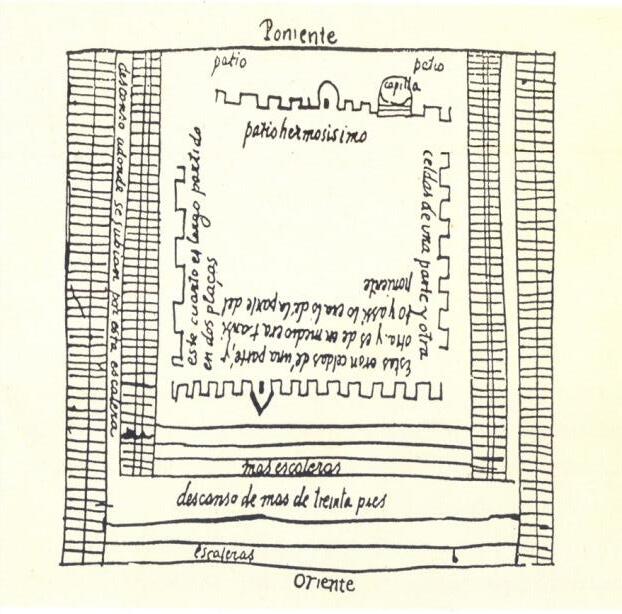 Poniente
patio
patio
capilla
patio hermosisimo
descanso adonde se subian por esta escalera
este cuarto es largo partido
en dos plaças
celdas de una parte y otra
Estas eran celdas de una parte, y
otra. y es de en medio era transi
to y assi lo era lo de la parte del
poniente
mas escaleras
descanso de mas de treinta pies
escaleras
Oriente